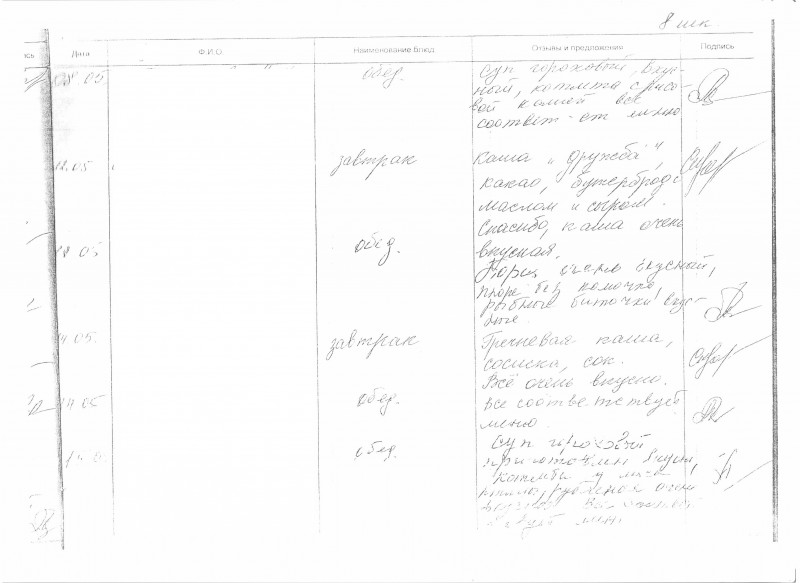 8 шк
Дата Ф.И.О. Наименование блюд Отзывы и предложения Подпись
08 05. обед. Суп гороховый, вкус-
ный, котлета с рисо-
вой кашей все
соответ-ет меню
завтрак Каша "дружба",
какао, бутерброд с
маслом и сыром.
Спасибо, каша очень
вкусная.
05 обед.
очень вкусный,
пюре без комочко,
рыбные биточки вкус-
ные.
05. завтрак Гречневая каша,
сосиска, сок.
Всё очень вкусно.
05 обед. Все соответствует
меню.
обед. Суп гороховой
приготовлен вкусно,
очень
меню